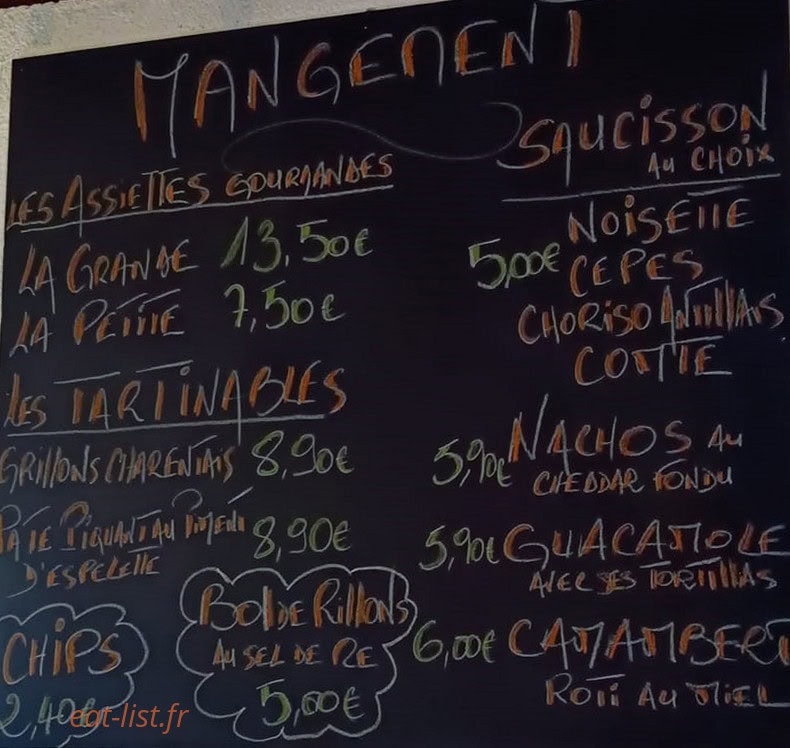 MANGEMENT
LES ASSIETTES GOURMANDES
LA GRANDE 13,50€
LA PETITE 7,50€
LES TARTINABLES
GRILLONS CHARENTAIS 8,90€
PATE PIQUANT AU PIMENT 8,90€
D'ESPELETTE
CHIPS
2,40€
BOL DE RILLONS
AU SEL DE RE
5,00€
SAUCISSON
AU CHOIX
NOISETTE
5,00€ CEPES
CHORISO ANTILLAIS
COMTE
5,90€ NACHOS AU
CHEDDAR FONDU
5,90€ GUACAMOLE
AVEC SES TORTILLAS
6,00€ CAMAMBERT
ROTI AU MIEL
eat-list.fr